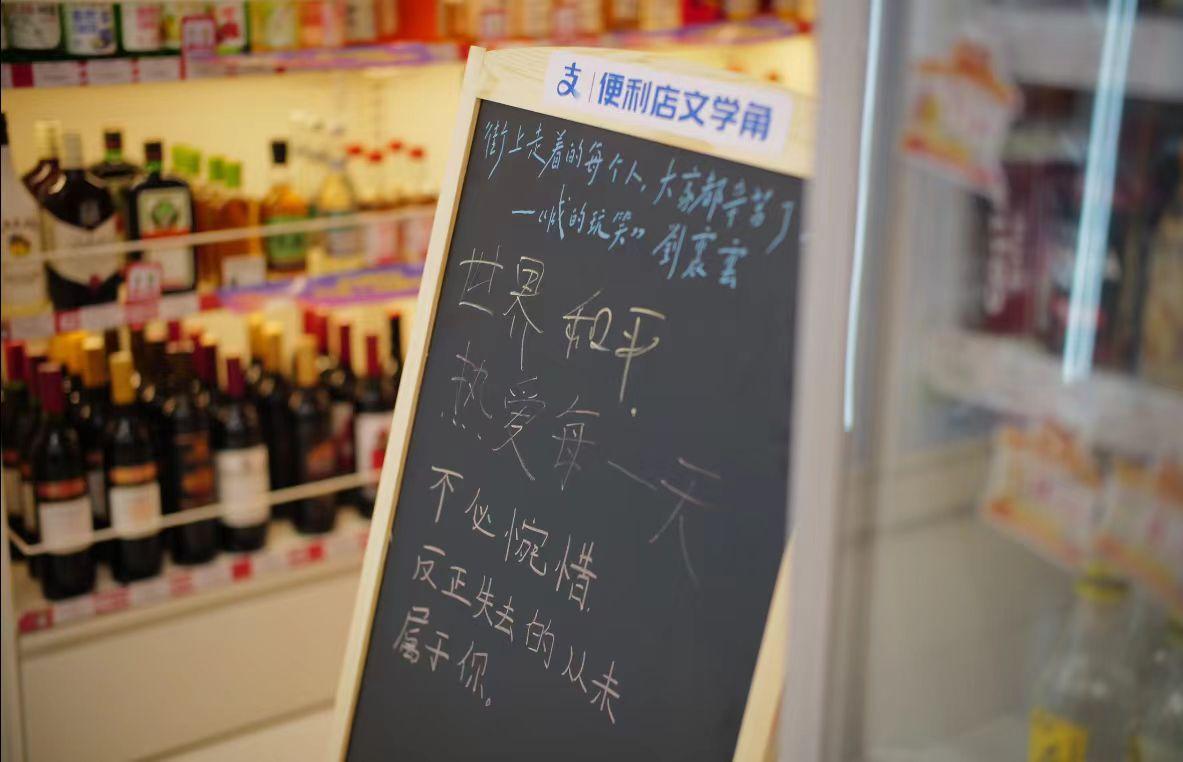 支|便利店文学角
街上走着的每个人,大家都辛苦了
—“咸的玩笑”刘震云
世界和平.
热爱每一天
不必惋惜.
反正失去的从未
属于你。